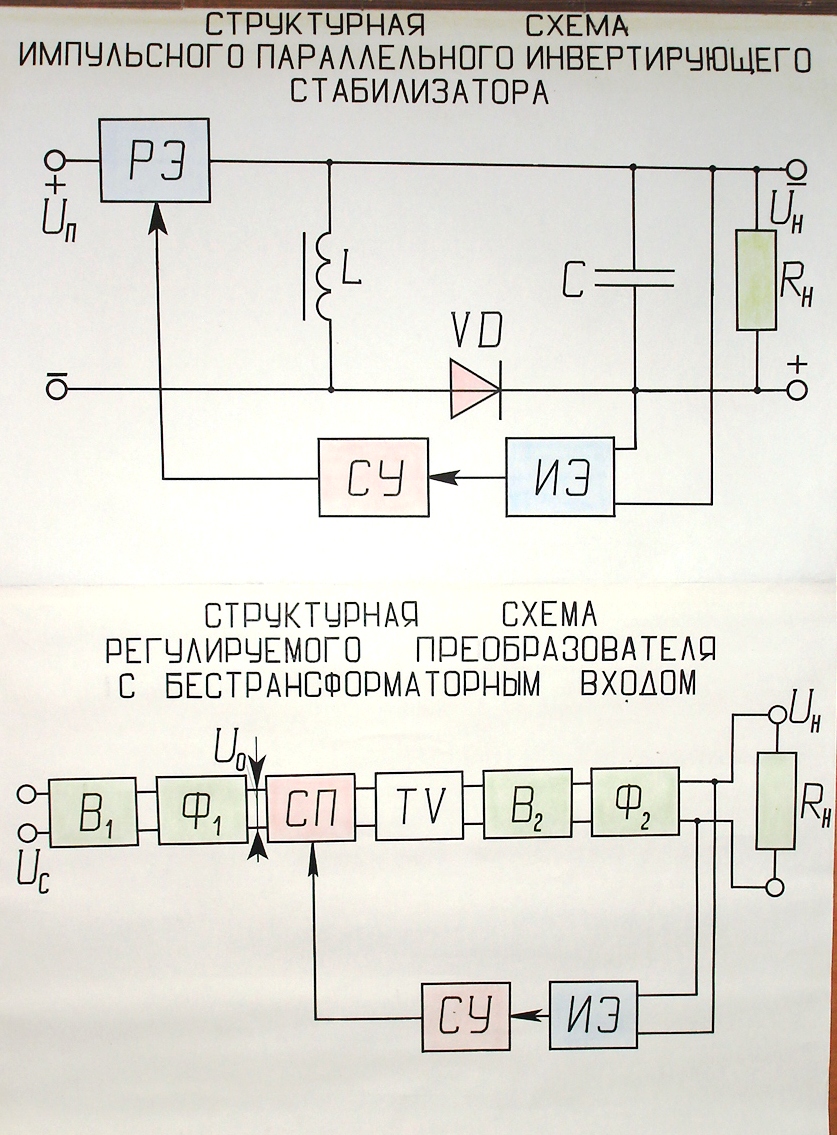 СТРУКТУРНАЯ СХЕМА
ИМПУЛЬСНОГО ПАРАЛЛЕЛЬНОГО ИНВЕРТИРУЮЩЕГО
СТАБИЛИЗАТОРА
РЭ
+
Uп
–
L
VD
C
–
Uн
Rн
+
СУ
ИЭ
СТРУКТУРНАЯ СХЕМА
РЕГУЛИРУЕМОГО ПРЕОБРАЗОВАТЕЛЯ
С БЕСТРАНСФОРМАТОРНЫМ ВХОДОМ
Uс
В1
Ф1
U0
СП
TV
В2
Ф2
Uн
Rн
СУ
ИЭ